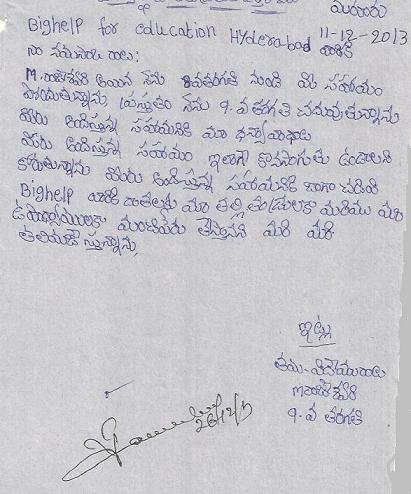 మదురు
Bighelp for education Hyderabad 11-12-2013
నా సమాచారాలు: వారికి
M. రాజేశ్వరి అయిన నేను 8వ తరగతి నుండి మీ సహాయం
పొందుతున్నాను ప్రస్తుతం నేను 9.వ తరగతి చదువుతున్నాను
మీరు అందిస్తున్న సహాయానికి మా ధన్యవాదాలు
మీరు అందిస్తున్న సహాయం ఇలాగే కొనసాగుతు ఉండాలని
కోరుతున్నాను మీరు అందిస్తున్న సహాయానికి బాగా చదివి
Bighelp వారికి దాతలకు మా తల్లి తండ్రులకు మరియు మా
ఉపాధ్యాయులకు మంచిపేరు తెస్తానని మరి మరి
తెలియజేస్తున్నాను
ఇట్లు
తమ విదేయురాలు
M రాజేశ్వరి
9.వ తరగతి